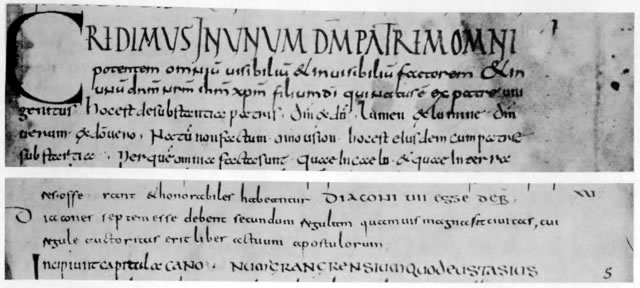 CREDIMUS INUNUM DM̅ PATREM OMNI
potentem omniū uisibiliū & inuisibiliū factorem & in
unū dnm̅ nrm̅ ihm̅ xpm̅ filium di̅ qui natus ē ex patre uni
genitus hoc est de substantia patris. Dm̅ de do̅. Lumen de lumine. dm̅
uerum de do̅ uero. Natū non factum. omousion. hoc est eiusdem cum patre
substantiae. Per quē omnia facta sunt. Quae in caelo. & quae in terra
& honorabiles habeantur DIACONI UII ESSE DEB̅. XV
Diacones septem esse debent secundum regulam quamuis magna sit ciuitas, cui
regule auctoritas erit liber actuum apostulorum.
Incipiunt capitula CANO. NUM GRANCRENSIUM QUOD EUSTASIUS
5